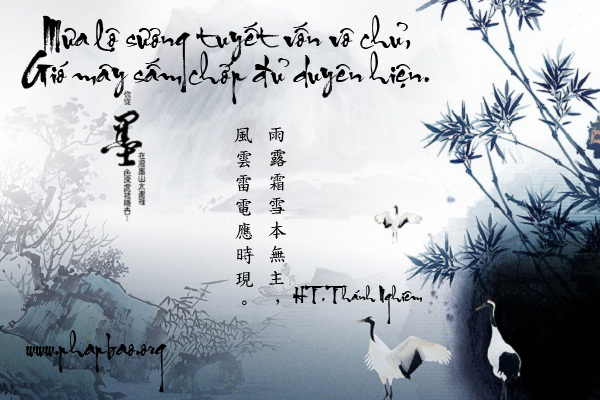 Mưa lộ sương tuyết vốn vô chủ,
Gió mây sấm chớp đủ duyên hiện.
墨
雨露霜雪本無主，
風雲雷電應時現。
HT. Thánh Nghiêm
www.phapbao.org